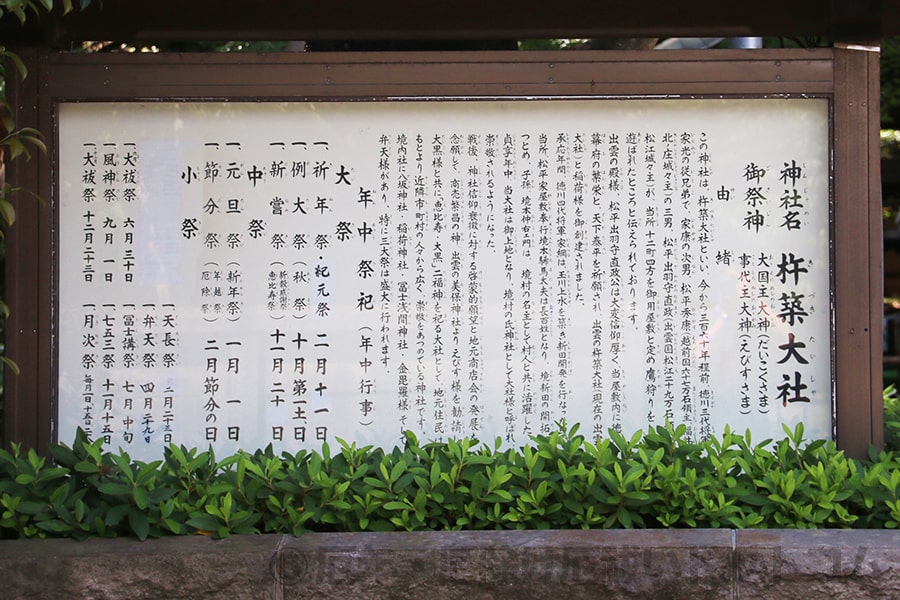 神社名 杵築大社
御祭神 大国主大神（だいこくさま）
事代主大神（えびすさま）
由緒
この神社は、杵築大社といい、今から三百六十年程前、徳川三代将軍
家光の従兄弟で、家康の次男、松平秀康、越前国六十七万石領主、福井
北ノ庄城々主の三男、松平出羽守直政、出雲国松江二十九万石
松江城々主が、当所一二町四方を御用屋敷と定め鷹狩りを
遊ばれたところと伝えられております。
出雲の殿様、松平出羽守直政公は大変信仰厚く、当屋敷内に徳
幕府の繁栄と、天下泰平を祈願され、出雲の杵築大社（現在の出雲
大社）と稲荷様を御創建されました。
承応年間、徳川四代将軍家綱は、玉川上水を築き新田開発を行な
当所松平家屋敷奉行境本騎馬太夫は長百姓となり、境新田の開拓
つとめ、子孫、境本神右エ門は、境村の名主として村人と共に活躍した
貞享年中、当大社は御上地となり、境村の氏神社として大社様と呼ばれ
崇敬されるようになった。
戦後、神社信仰衰微に対する啓蒙的願望と地元商店会の発展
念願して、商売繁昌の神、出雲の美保神社よりえびす様を勧請
大黒様と共に、恵比寿・大黒二福神を祀る大社として、地元住民は
もとより、近隣市町村の人々から広く崇敬をあつめている神社です。
境内社に八坂神社・稲荷神社・富士浅間神社・金毘羅様・
弁天様があり、特に三大祭は盛大に行われます。
年中祭祀（年中行事）
大祭
一、祈年祭・紀元祭 二月十一日
一、例大祭（秋祭） 十月第一土日
一、新嘗祭（新穀感謝祭 恵比寿祭） 十一月二十
中祭
一、元旦祭（新年祭） 一月一日
一、節分（年越祭 厄除） 二月節分の日
小祭
一、天長祭 二月二十三日
一、大祓祭 六月三十日
一、弁天祭 四月二十九日
一、風神祭 九月一日
一、冨士講祭 七月中旬
一、大祓祭 十二月二十三日
一、七五三祭 十一月十五
一、月次祭 毎月一日十五